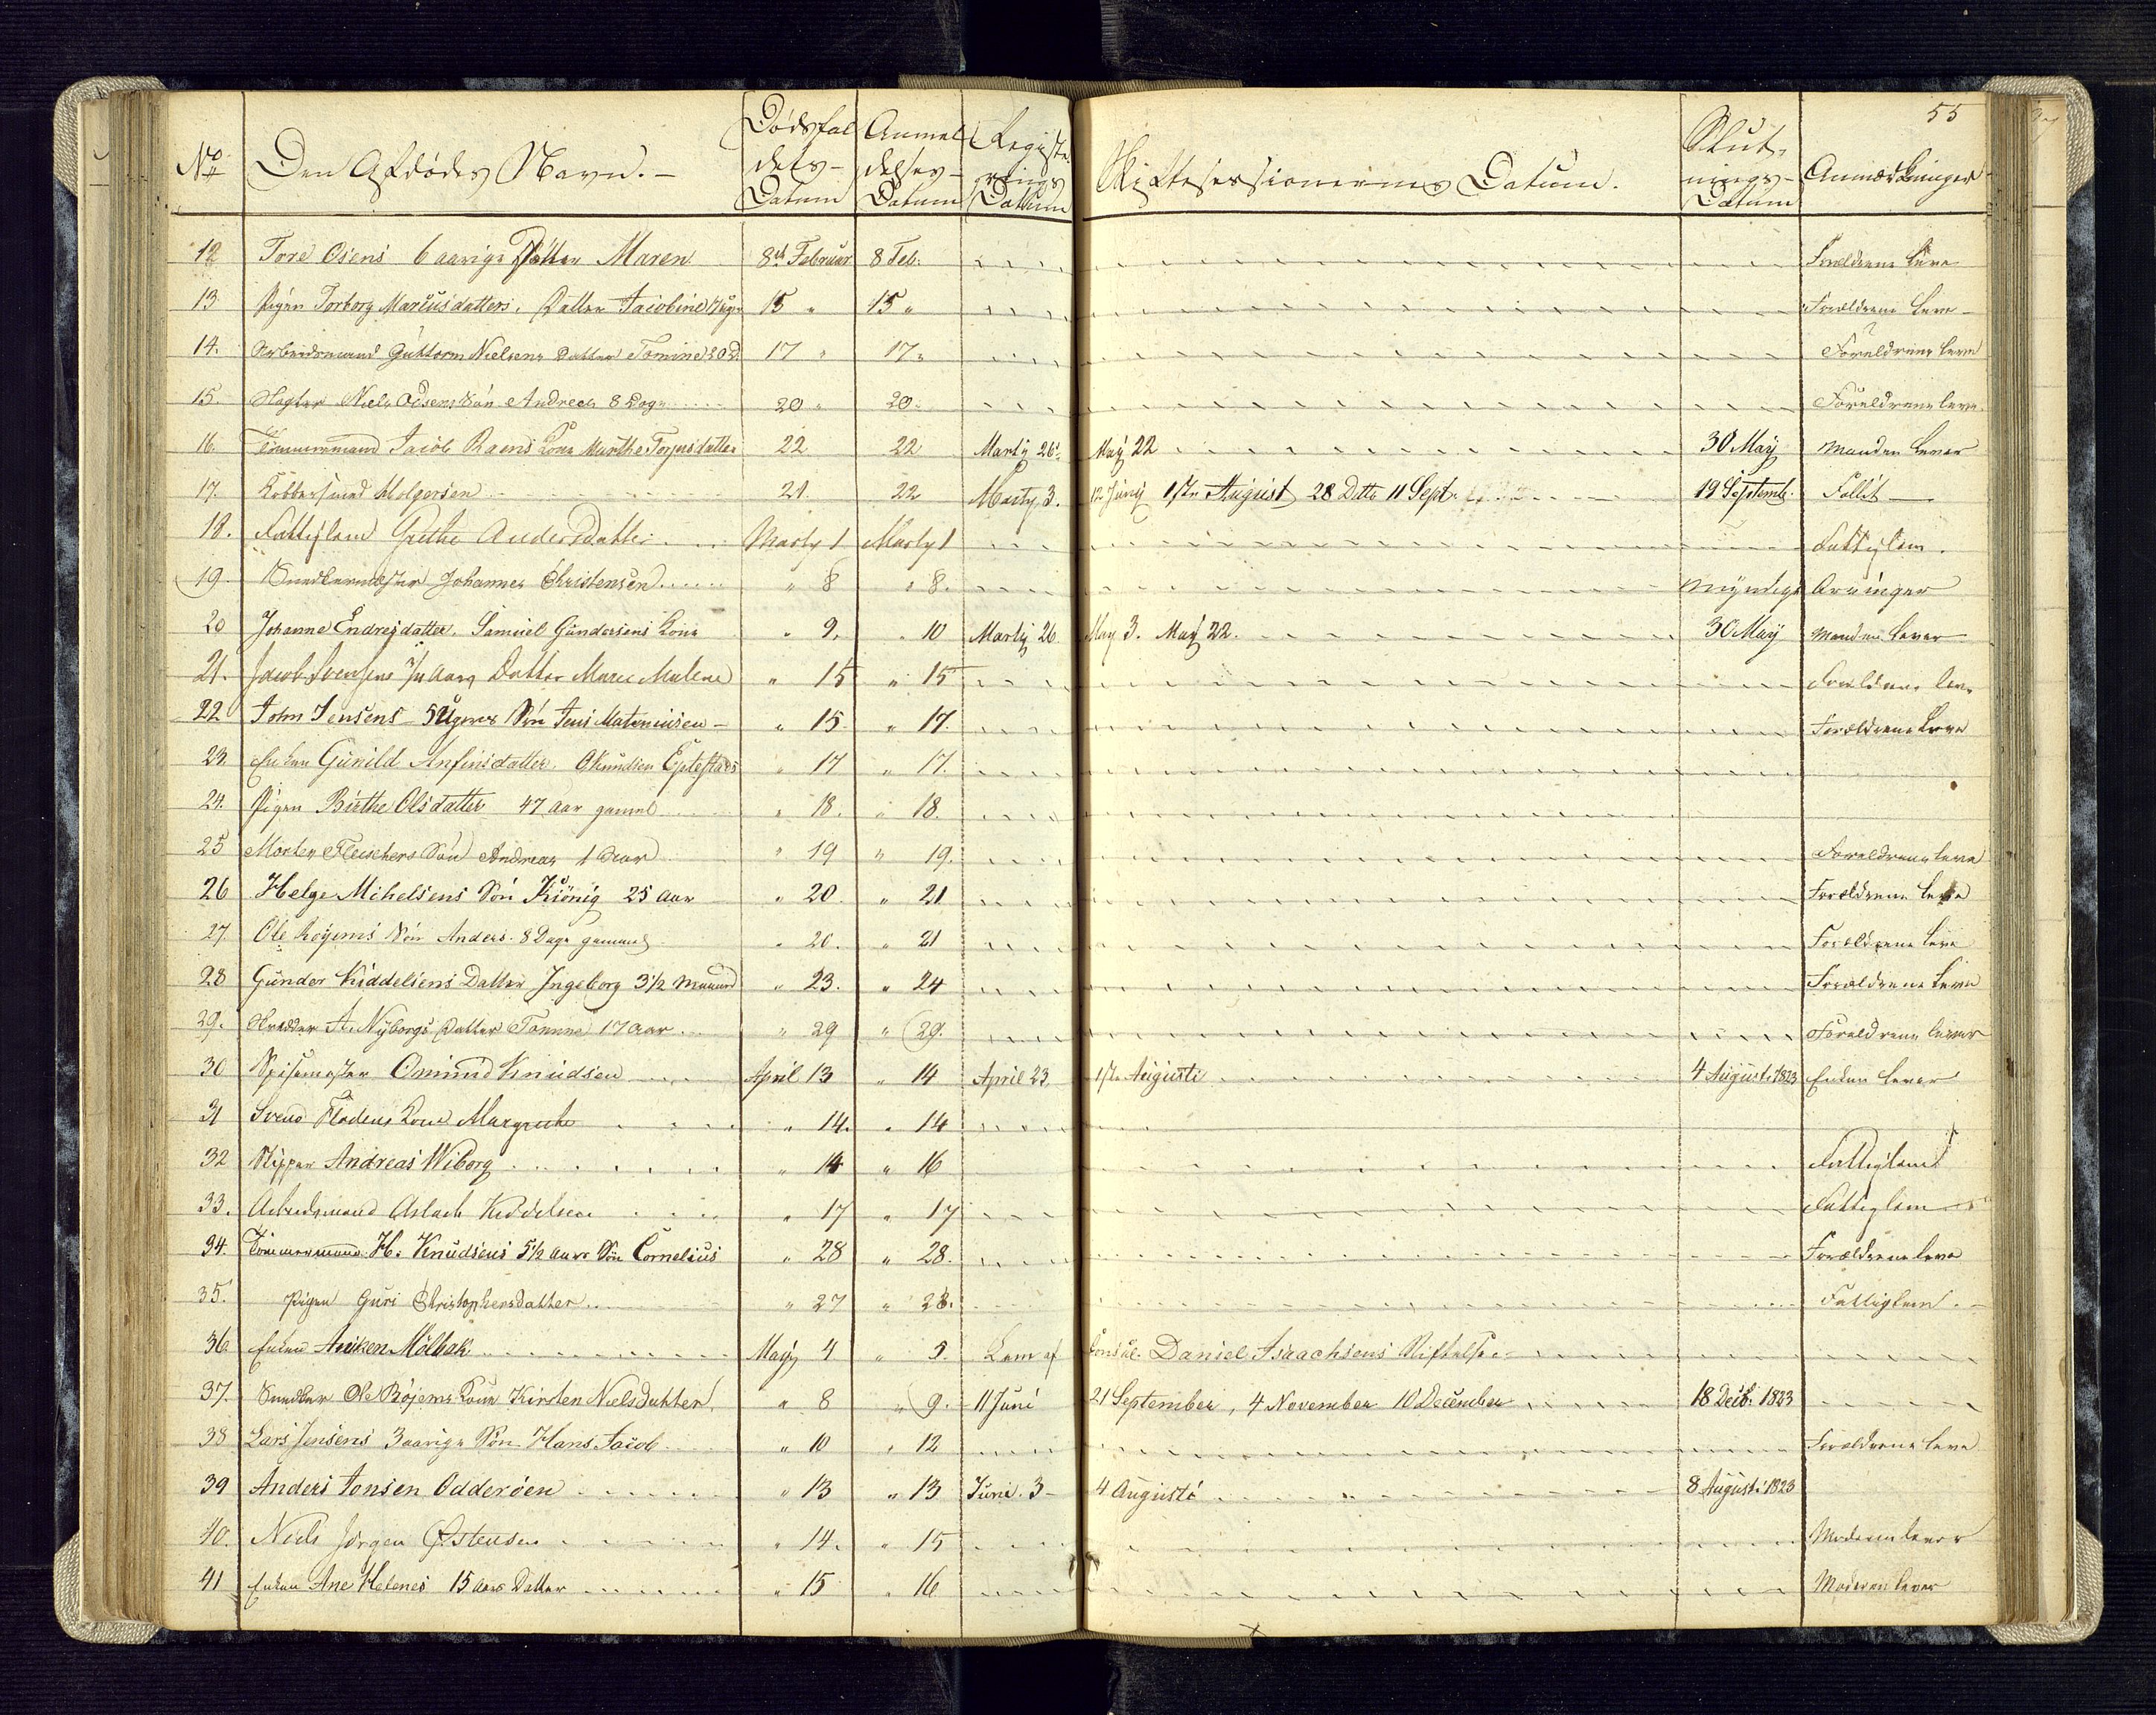 55
No Den Afdødes Navn. Dødsfaldets Datum Anmeldelses Datum Registerings Datum Skiftesessionernes Datum. Slutnings Datum Anmærkninger
12 Tore Osens 6 aarige Datter Maren 8d Februar 8 Feb. Forældrene leve
13 Pigen Torborg Marcusdatters Datter Jacobine 15 " 15 " Forældrene leve
14. Arbeidsmand Guttorm Nielsens Datter Tomine 20 D. 17 " 17 " Forældrene leve
15. Niels Olsens Søn Andreas 8 Dage 20 " 20 " Forældrene leve
16. Tømmermand Jacob Roens Kone Marthe Torjusdatter 22 22 Martÿ 26 Maÿ 22 30 Maÿ Manden lever
17. Kobbersmed Holgersen 21 22 Marty 3. 12 Junÿ 1ste August 28 Dito 11 Sept. 19 Septemb. Fallit
18. Fattiglem Grethe Andersdatter Marty 1 Marty 1 Fattiglem.
19 Snedkermester Johannes Christensen " 8 " 8. Myndige Arvinger
20 Johanne Endresdatter. Samuel Gundersens Kone " 9. " 10 Martÿ 26 Maÿ 3. Maÿ 22. 30 Maÿ Manden lever
21. Jacob Svensens Aars Datter Maren Malene " 15 " 15 Forældrene leve
22 John Jensens 5 Ugers Søn Jens Mateniusen " 15 " 17. Forældrene leve
23. Enken Gunild Anfinsdatter. " 17 " 17.
24. Pigen Birthe Olsdatter 47 Aar gammel " 18. " 18.
25 Morten Fleischers Søn Andreas 1 Aar " 19 " 19. Forældrene leve
26 Helge Mihelsens Søn Kiönig 25 Aar " 20. " 21 Forældrene leve
27. Ole Røyems Søn Anders 8 Dage gammel " 20. " 21 Forældrene leve
28 Gunder Kiddelsens Datter Ingeborg 3 1/2 Maaned " 23. " 24 Forældrene leve
29. Skrædder A. Nyborgs Datter Tomine 17 Aar " 29 " 29. Forældrene lever
30 Osmund Knudsen April 13 " 14 April 23 1ste Augusti 4 August 1823 Enken lever
31 Svend Flodens Kone Margrethe " 14. " 14
32 Skipper Andreas Wiborg " 14 " 16 Fattiglem
33. Arbeidsmand Aslach Keddelsen " 17 " 17 Fattiglem
34. Tømmermand H. Knudsens 5 1/2 Aars Søn Cornelius " 28 " 28. Forældrene leve
35. Pigen Guri Christophersdatter " 27 " 28. Fattiglem.
36. Enken Aniken Mölbak Maÿ 4 " 5. Lem af Consul Daniel Isaachsens Stiftelse
37. Snedker Ole Röjems Kone Kirsten Nielsdatter. " 8 " 9. 11 Juni 21 September, 4 November 10 December 18 Decb. 1823
38 Lars Jensens 3 aarige Søn Hans Jacob " 10 " 12 Forældrene leve
39 Anders Tonsen Odderöen " 13 " 13 Juni 3 4 Augusti 8 August 1823
40. Niels Jørgen Østensen " 14. " 15 Moderen lever
41 Enken Ane Helenes 15 Aars Datter " 15 " 16 Moderen lever